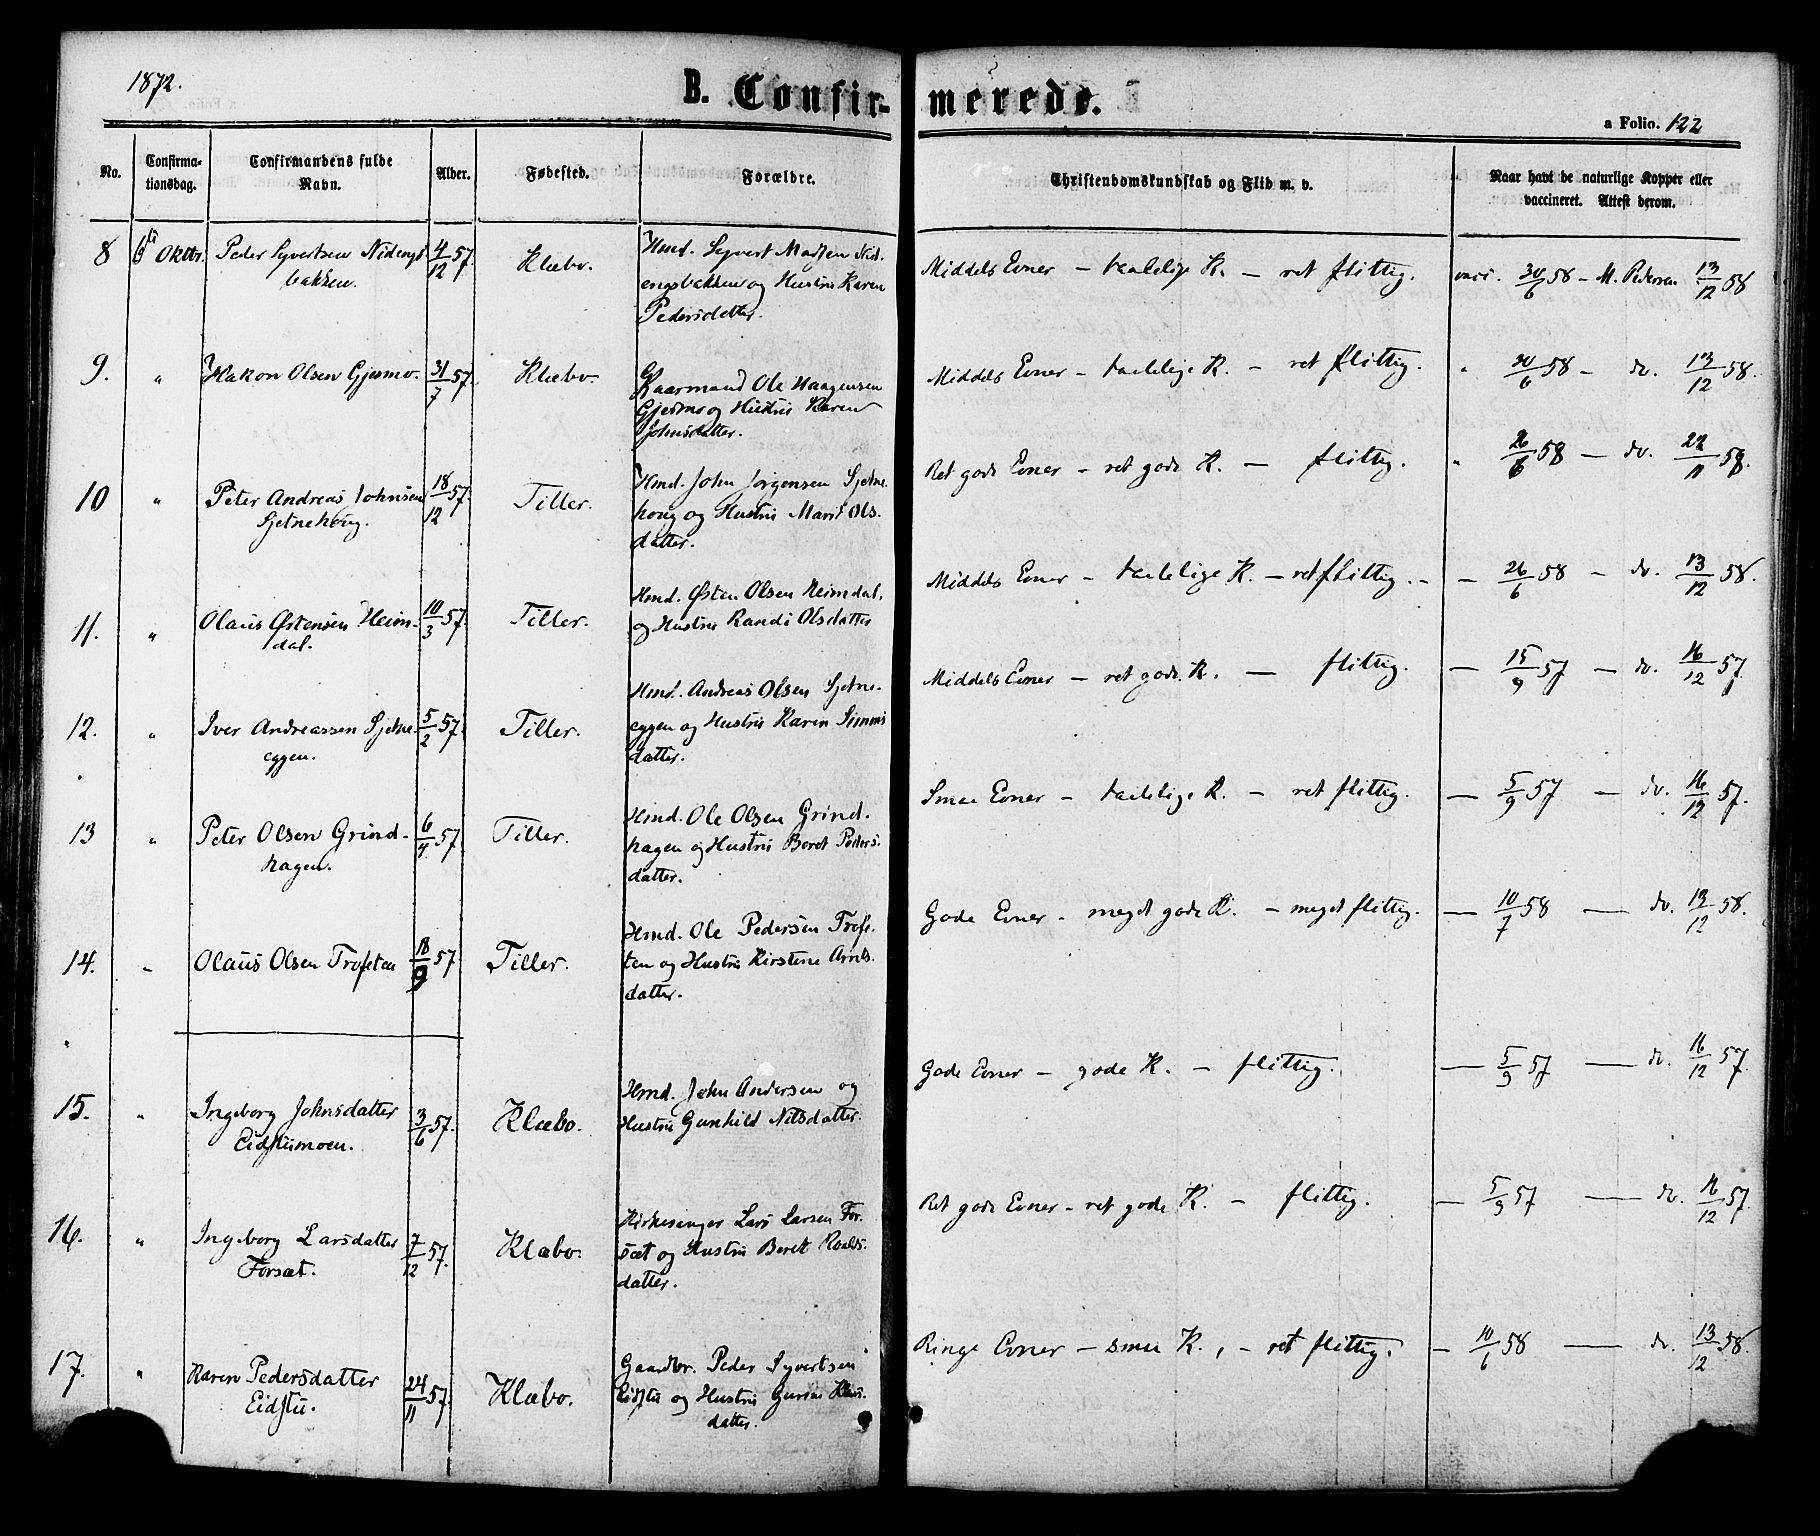 1872.
B. Confirmerede.
a Folio. 122
No.
Confirmationsdag.
Confirmandens fulde Navn.
Alder.
Fødested.
Forældre.
Christendomskundskab og Flid m. v.
Naar havt de naturlige Kopper eller
vaccineret. Attest derom.
8 6 Oktbr. Peder Syvertsen Nidengs 4/12 57. Klæbo. Hmd. Syvert Madsen Nid-
bakken. engsbakken og Hustru Karen
Pedersdatter.
Middels Evner – taalelige K. – ret flittig. vacc. 30/6 58 – M. Pedersen 13/12 58
9. " Hakon Olsen Gjesmo. 31/7 57. Klæbo. Kaarmand Ole Haagensen
Gjesmo og Hustru Karen
Johnsdatter.
Middels Evner – taalelige K. – ret flittig. " 30/6 58 – do. 13/12 58.
10 " Peter Andreas Johnsen 18/12 57. Tiller. Hmd. John Jørgensen Sjetne-
Sjetnehoug. houg og Hustru Marit Ols-
datter.
Ret gode Evner – ret gode K. – flittig. " 26/6 58 – do. 22/11 58.
11. " Olaus Østensen Heim- 10/3 57. Tiller. Hmd. Østen Olsen Heimdal,
dal. og Hustru Randi Olsdatter
Middels Evner – taalelige K. – ret flittig. – – 26/6 58 – do. 13/12 58.
12. " Iver Andreassen Sjetne- 5/2 57. Tiller. Hmd. Andreas Olsen Sjetne-
eggen. eggen og Hustru Karen Simons
datter.
Middels Evner – ret gode K. – flittig. – 15/9 57 – do. 16/12 57
13 " Peter Olsen Grind- 6/4 57. Tiller. Hmd. Ole Olsen Grind-
hagen. hagen og Hustru Beret Peders-
datter.
Smaa Evner – taalelige K. – ret flittig. – 5/9 57 – do. 16/12 57.
14. " Olaus Olsen Trøften 18/9 57 Tiller. Hmd. Ole Pedersen Trøf-
ten og Hustru Kirstine Arnts-
datter.
Gode Evner – meget gode K. – meget flittig. – 10/7 58 – do. 13/12 58.
15. " Ingeborg Johnsdatter 3/6 57. Klæbo. Hmd. John Andersen og
Eidstumoen. Hustru Gunhild Nilsdatter.
Gode Evner – gode K. – flittig. – 5/9 57 – do. 16/12 57
16. " Ingeborg Larsdatter 7/12 57. Klæbo. Kirkesanger Lars Larsen For-
Forsæt. sæt og Hustru Beret Roalds-
datter.
Ret gode Evner – ret gode K. – flittig. – 5/9 57 – do. 16/12 57.
17. " Karen Pedersdatter 24/11 57. Klæbo. Gaardbr. Peder Syvertsen
Eidstu. Eidstu og Hustru Guruni
datter.
Ringe Evner – smaa K., – ret flittig. – 10/6 58 – do. 13/12 58.